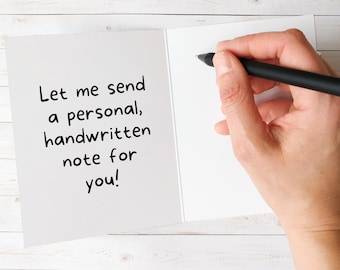 Let me send
a personal,
handwritten
note for
you!